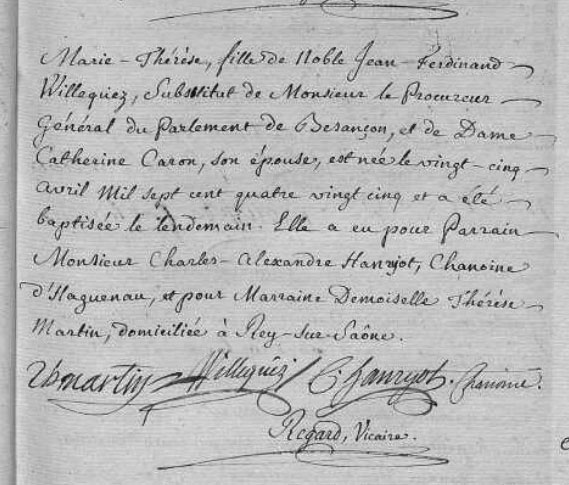 Marie-Thérèse, fille de Noble Jean-Ferdinand
Willequez, Substitut de Monsieur le Procureur
Général du Parlement de Besançon, et de Dame
Catherine Caron, son épouse, est née le vingt-cinq
avril Mil sept cent quatre vingt cinq et a élé
baptisée le lendemain. Elle a eu pour Parrain
Monsieur Charles-Alexandre Hanryot, Chanoine
d'Haguenau, et pour Marraine Demoiselle Thérèse
Martin, domiciliée à Rey-sur-Saône.
Th martin Willequez C. hanryot. Chanoine.
Regard, Vicaire.